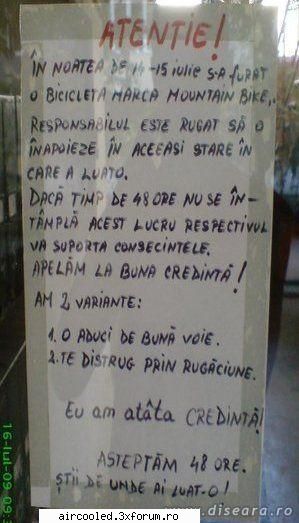 ATENȚIE!
ÎN NOATEA DE 14-15 iulie S-A FURAT
O BICICLETĂ MARCA MOUNTAIN BIKE,.
RESPONSABILUL ESTE RUGAT SĂ O
ÎNAPOIEZE ÎN ACEEASI STARE ÎN
CARE A LUATO.
DACĂ TIMP DE 48 ORE NU SE ÎN-
TÂMPLĂ ACEST LUCRU RESPECTIVUL
VA SUPORTA CONSECINTELE.
APELĂM LA BUNA CREDINTĂ!
AM 2 VARIANTE:
1. O ADUCI DE BUNĂ VOIE.
2. TE DISTRUG PRIN RUGĂCIUNE.
Eu am atâta CREDINTĂ!
ASTEPTĂM 48 ORE.
ȘTII DE UNDE AI LUAT-O!
www.diseara.ro
aircooled.3xforum.ro